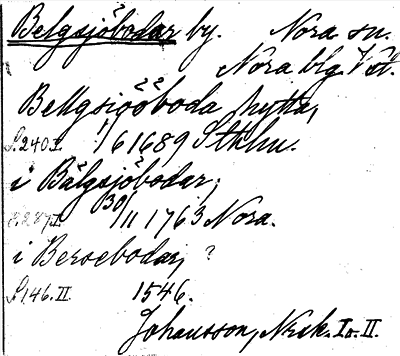 Belgsjöbodar by. Nora sn.
Nora blg. Vstl.
Bellgsiööboda hytta,
S. 240. I. 1/6 1689 Sthlm.
i Bälgsjöbodar;
S. 287. I. 30/11 1763 Nora.
i Beroebodar, ?
S. 146. II. 1546.
Johansson, Nrsk. I o. II.